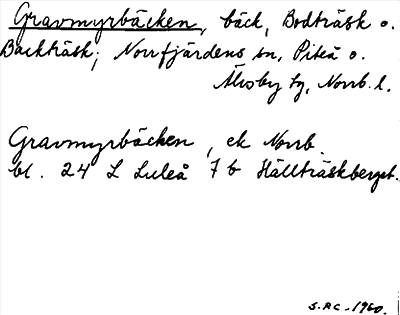 Gravmyrbäcken, bäck, Bodträsk o.
Backträsk; Norrfjärdens sn, Piteå o.
Älvsby tg, Norrb. l.
Gravmyrbäcken, ek Norrb.
bl. 24 L Luleå 7 b Hällträskberget.
S.AC. 1960.